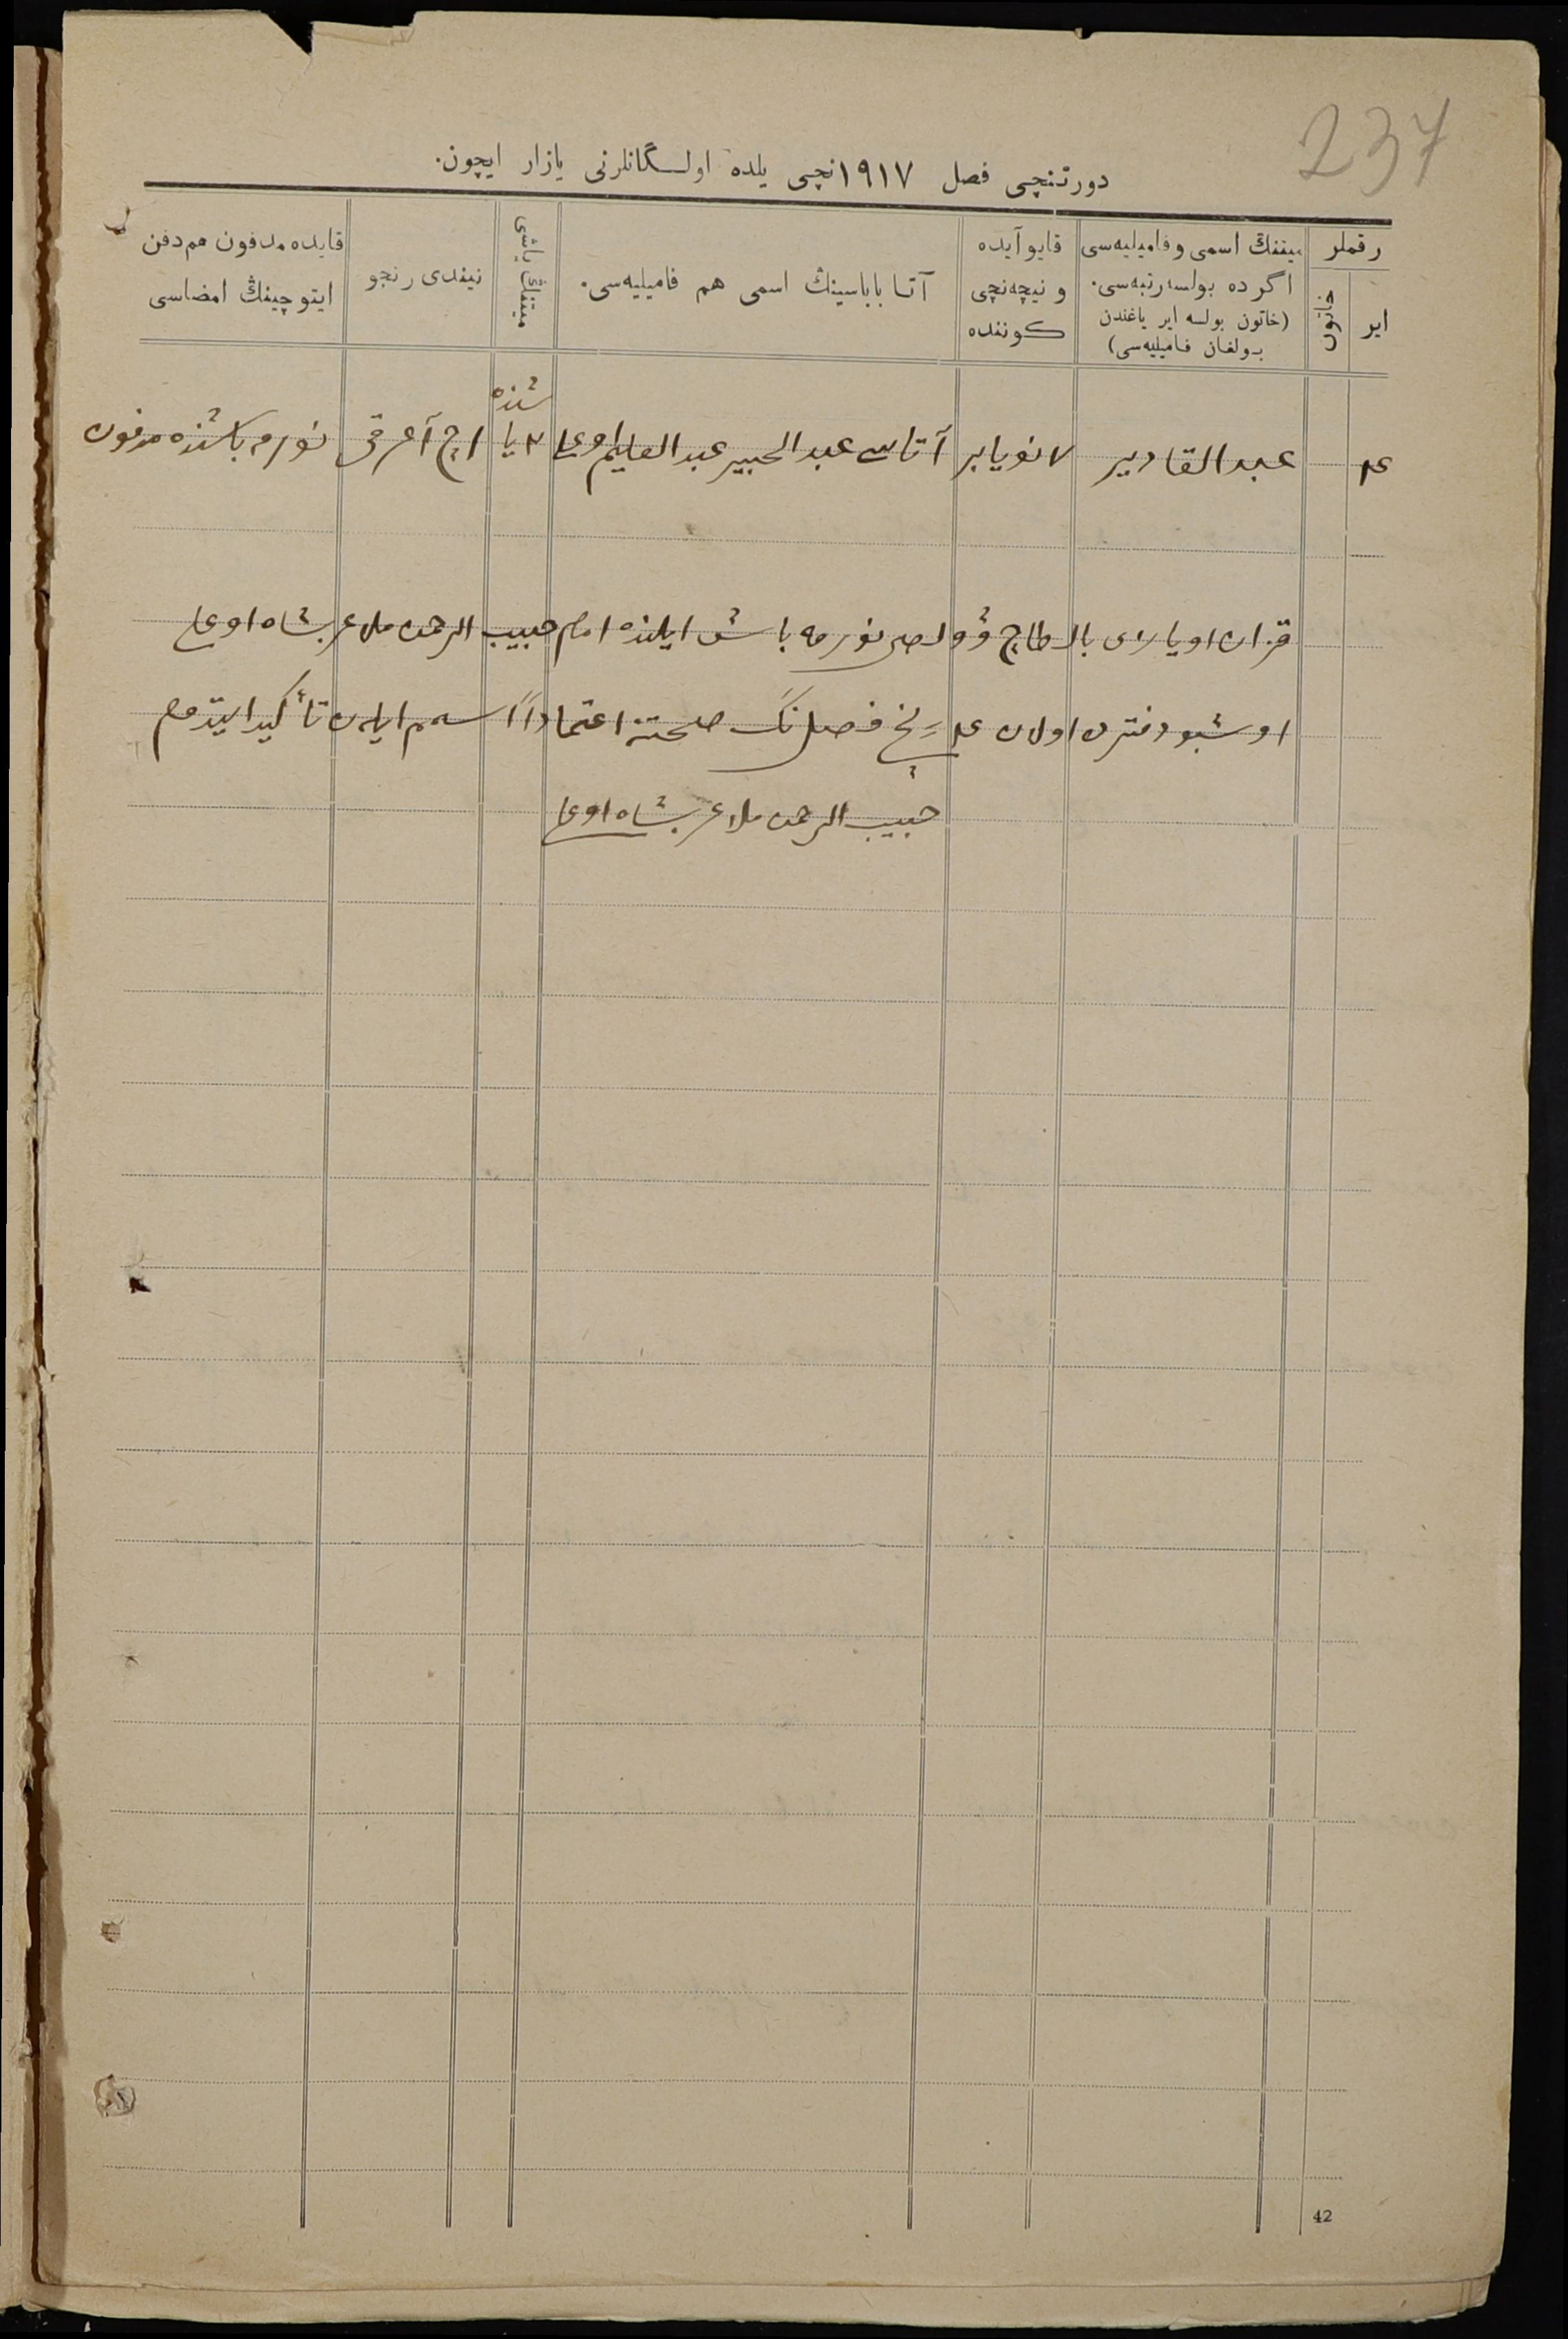 237
دورتنچی فصل ۱۹۱۷نچی یلده اولـگانلرنی یازار ایچون.
رقملر
ایر
خاتون
میتنڭ اسمی و فامیلیه‌سی
اگر ده بولسه رتبه‌سی.
(خاتون بولسه ایر یاغندن
بـولغان فامیلیه‌سی)
قایو آیده
و نیچه‌نچی
کوننده
آتـا باباسینڭ اسمی هم فامیلیه‌سی.
میتنڭ یاشی
نیندی رنجو
قایده مدفون هم دفن
ایتوچینڭ امضاسی
عبد القادیر
۷ نویابر
آتاسی عبد الخبیر عبد العلیم اوغلی
۲ یاشنده
اچ آغرقی
نورمه باشنده مدفون
قزان اویازی بالاطاچ وولصی نورمه باش ایلنده امام حبیب الرحمن ملا عربشاه اوغلی
اوشبو دفترده اولان نچی فصل نڭ صحتنه اعتمادا اسمم ایله تأکید ایتدم
حبیب الرحمن ملا عربشاه اوغلی
42